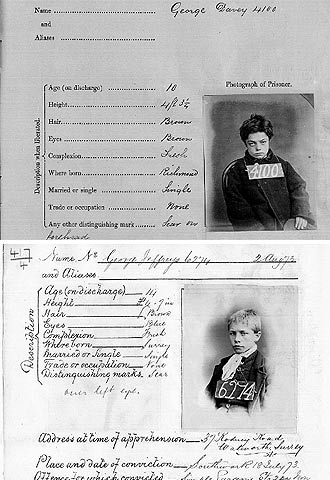 Name George Davey 4100
and
Aliases
Age (on discharge) 10
Height
Hair Brown
Eyes Brown
Complexion Fresh
Where born Richmond
Married or single Single
Trade or occupation None
Any other distinguishing mark Scar on
forehead
Description when liberated.
Photograph of Prisoner.
4100
Name No George 6274 2 Aug 73
and Aliases
Description
Age (on discharge)
Height
Hair Brown
Eyes Blue
Complexion Fresh
Where born Surrey
Married or Single Single
Trade or occupation None
Distinguishing marks Scar
over left eye.
6274
Address at time of apprehension 37 Rodney Road
Walworth Surrey
Place and date of conviction Southwark 19 July 73
Offence for which convicted